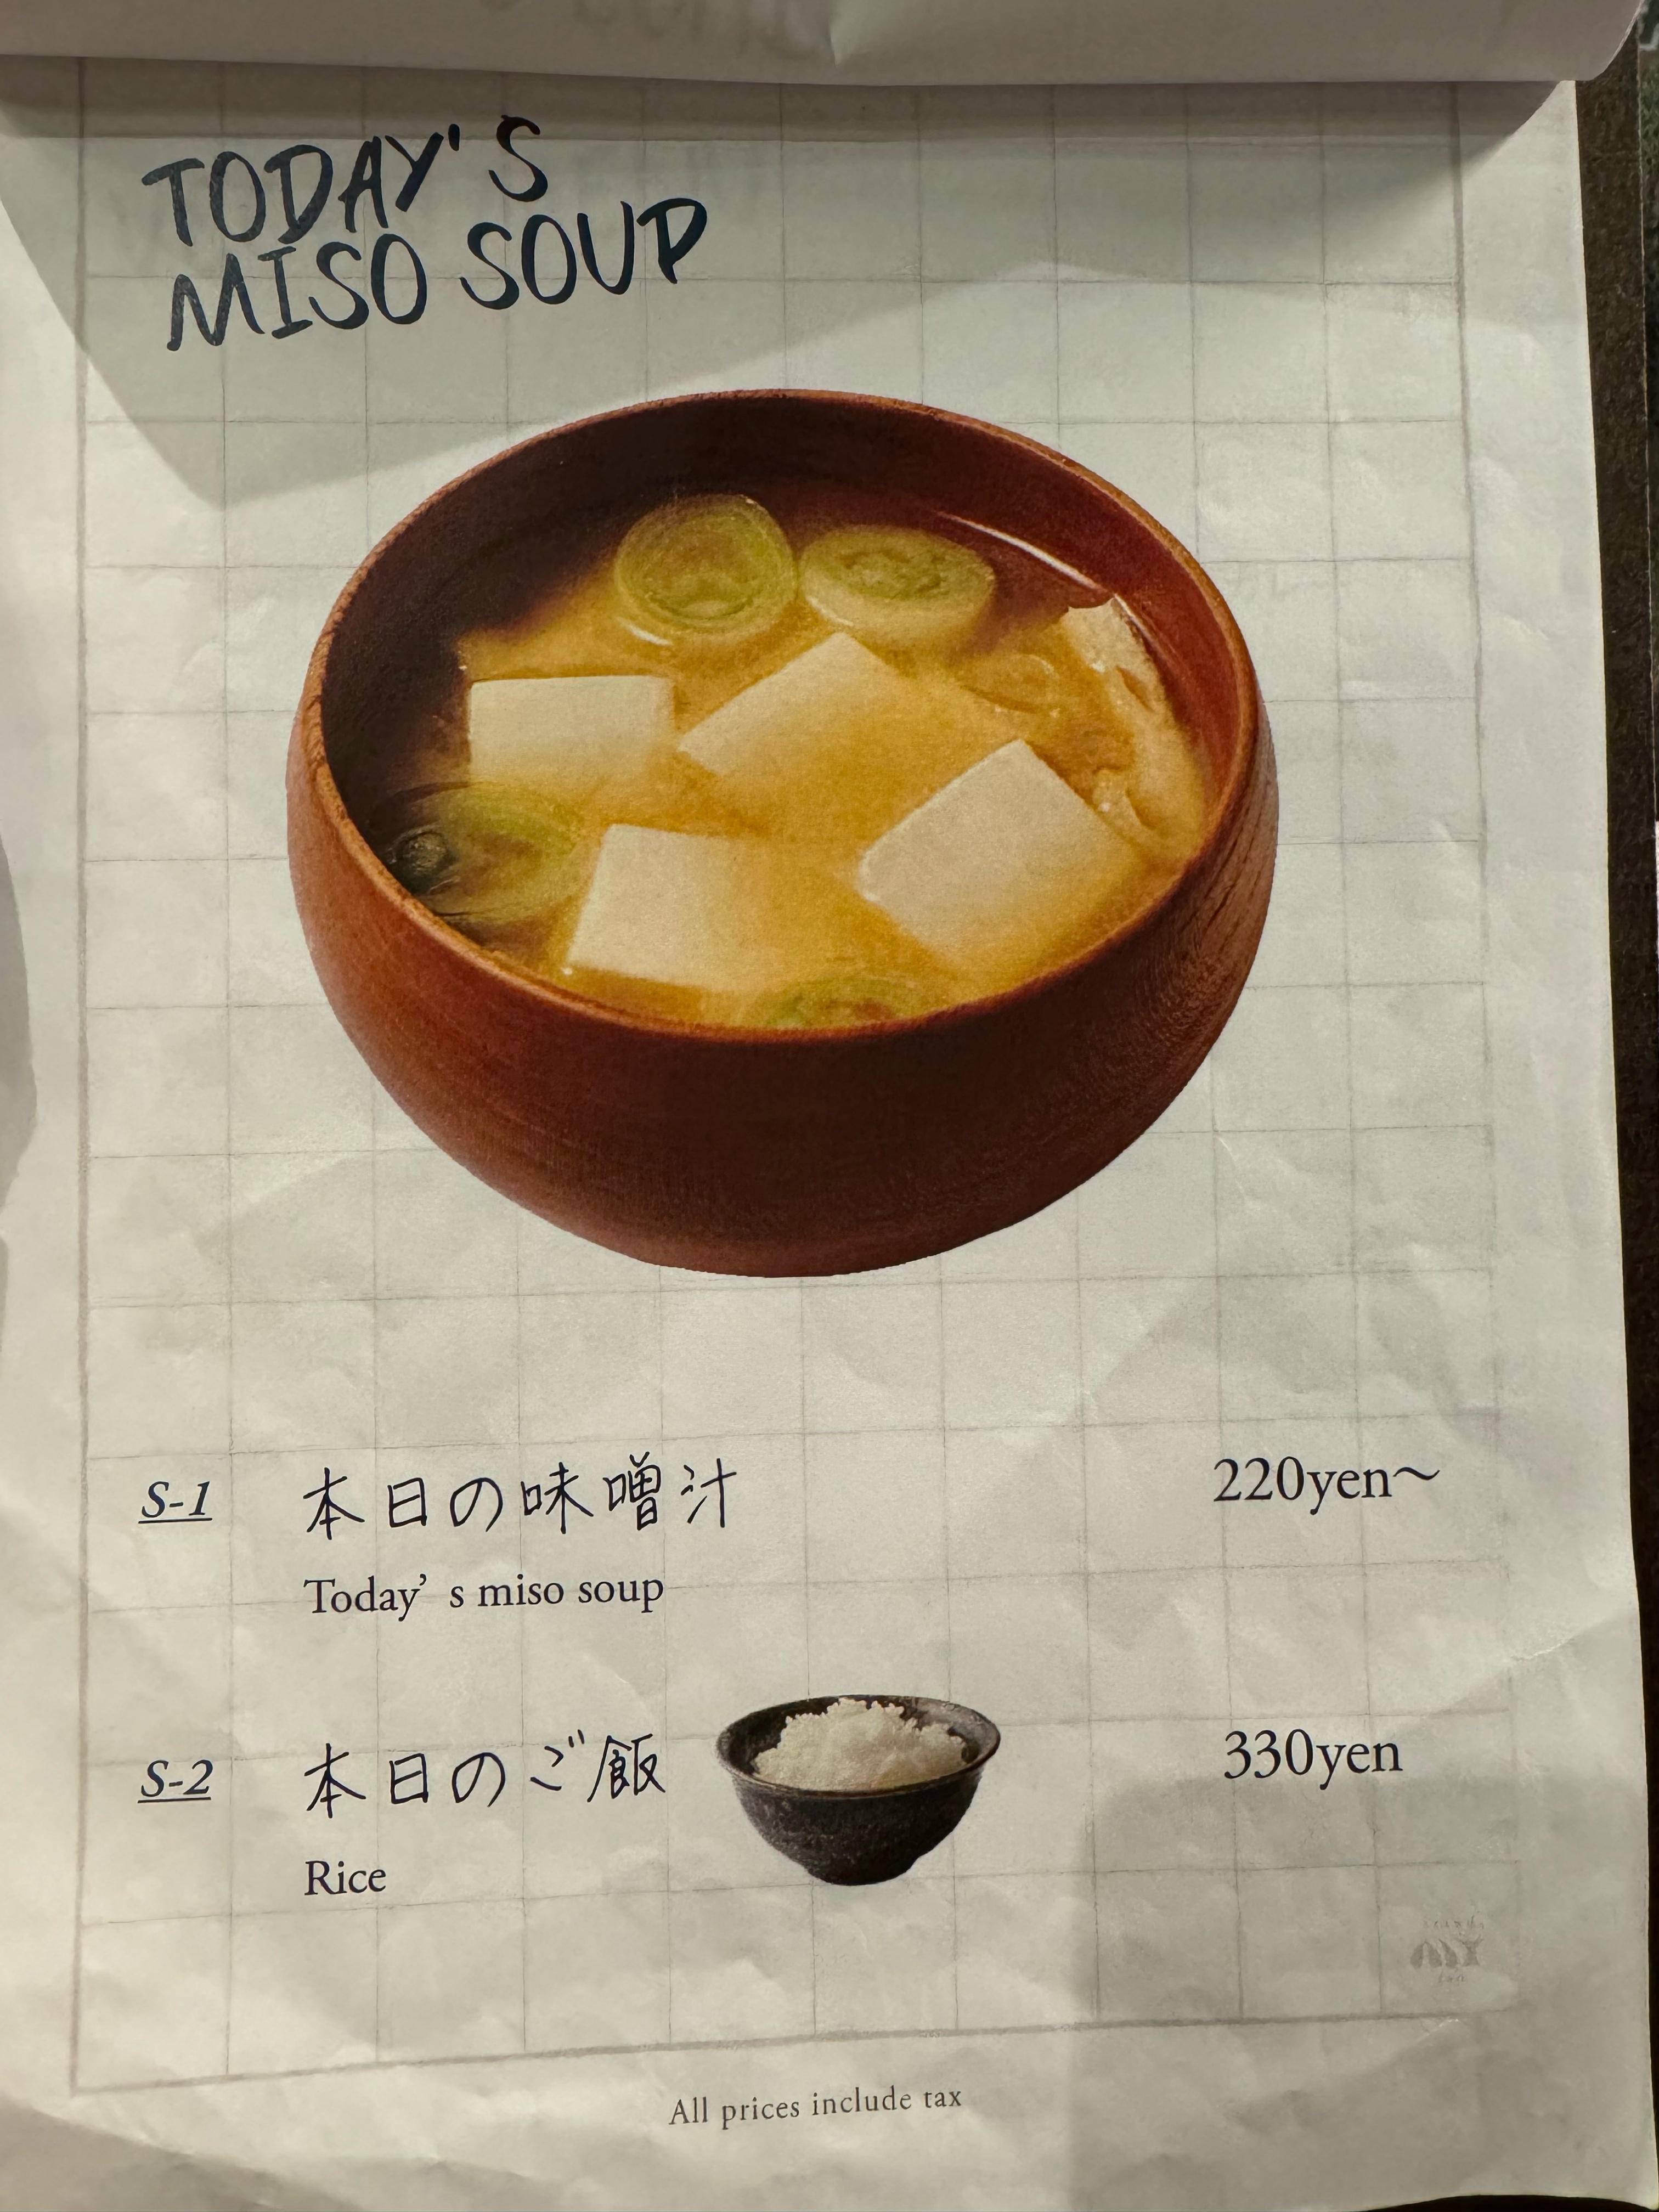 TODAY'S
MISO SOUP
S-1 本日の味噌汁 220yen～
Today's miso soup
S-2 本日のご飯 330yen
Rice
All prices include tax